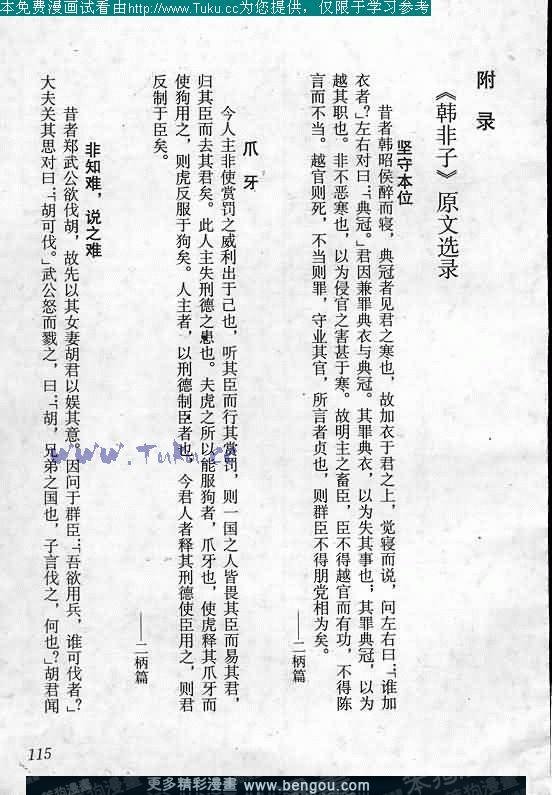 本免费漫画试看由http://www.Tuku.cc为您提供，仅限于学习参考
附录
《韩非子》原文选录
坚守本位
昔者韩昭侯醉而寝，典冠者见君之寒也，故加衣于君之上，觉寝而说，问左右曰：“谁加
衣者？”左右对曰：“典冠。”君因兼罪典衣与典冠。其罪典衣，以为失其事也；其罪典冠，以为
越其职也。非不恶寒也，以为侵官之害甚于寒。故明主之畜臣，臣不得越官而有功，不得陈
言而不当。越官则死，不当则罪，守业其官，所言者贞也，则群臣不得朋党相为矣。
——二柄篇
爪牙
今人主非使赏罚之威利出于己也，听其臣而行其赏罚，则一国之人皆畏其臣而易其君，
归其臣而去其君矣。此人主失刑德之患也。夫虎之所以能服狗者，爪牙也，使虎释其爪牙而
使狗用之，则虎反服于狗矣。人主者，以刑德制臣者也，今君人者释其刑德使臣用之，则君
反制于臣矣。
——二柄篇
非知难，说之难
昔者郑武公欲伐胡，故先以其女妻胡君以娱其意。因问于群臣：“吾欲用兵，谁可伐者？”
大夫关其思对曰：“胡可伐。”武公怒而戮之，曰：“胡，兄弟之国也，子言伐之，何也？”胡君闻
www.Tuku.cc
115
更多精彩漫畫 www.bengou.com